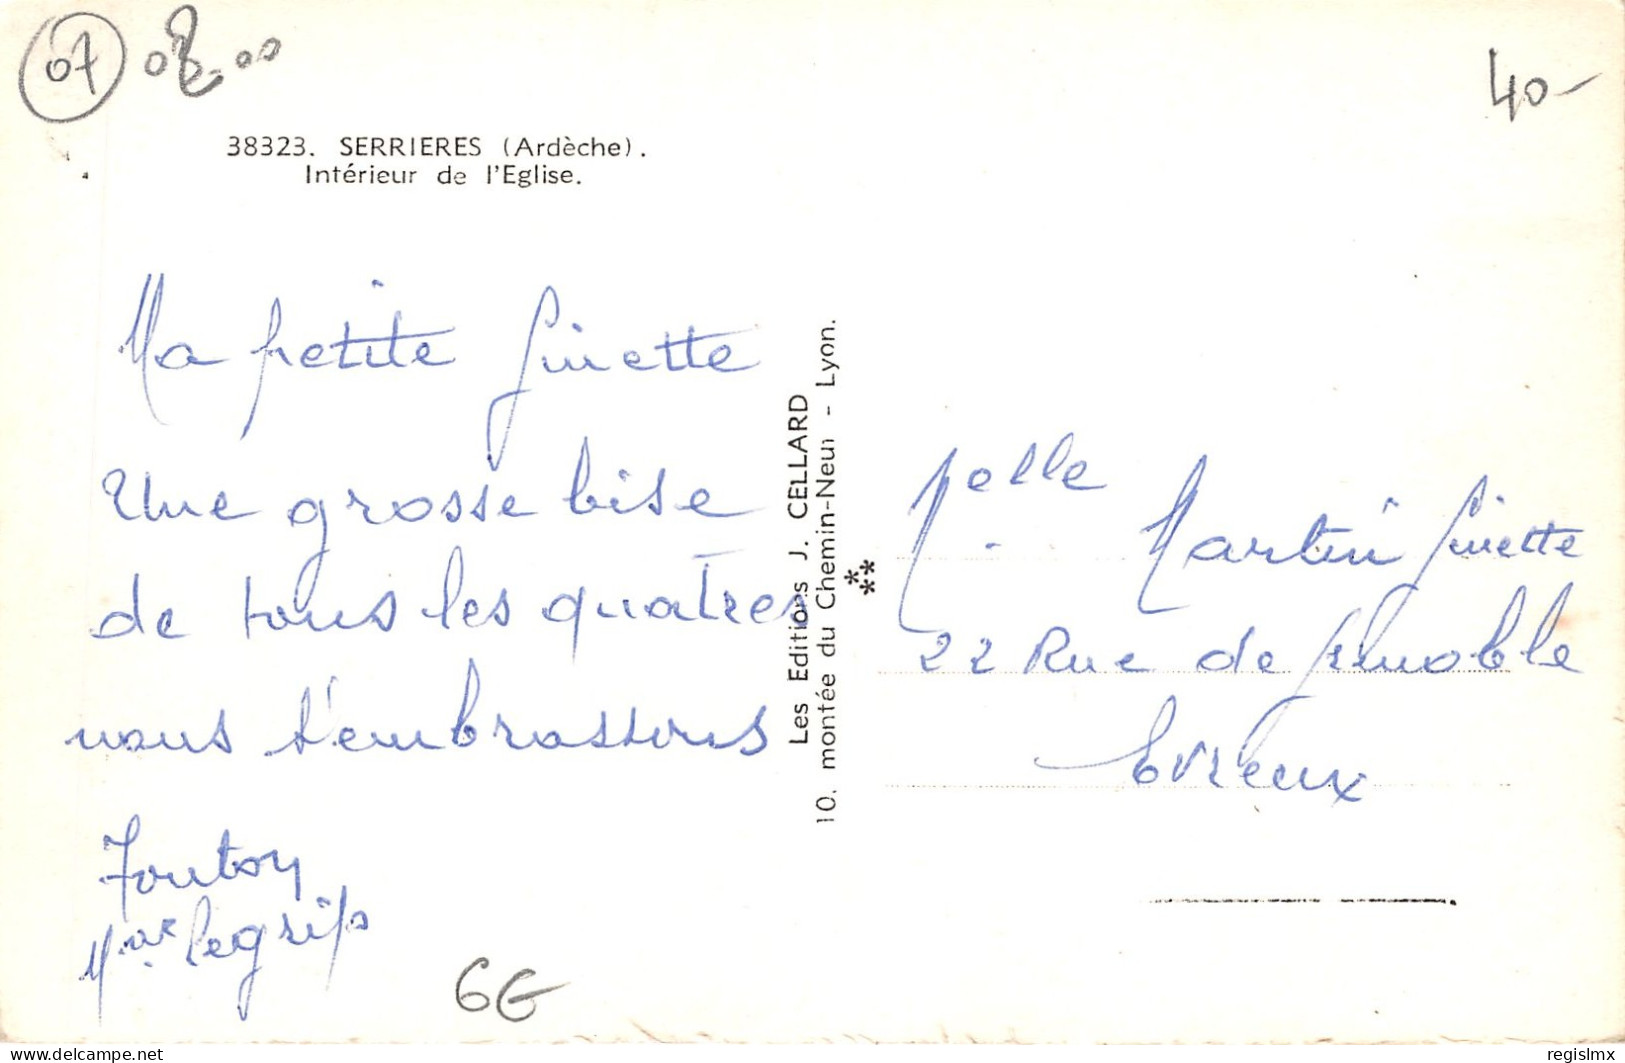 07 08.00
40-
38323. SERRIERES (Ardèche).
Intérieur de l'Eglise.
Ma petite Ginette
Une grosse bise
de tous les quatres
nous t'embrassons
Toutoy
Mme Legrips
6€
Les Editions J. CELLARD
10. montée du Chemin-Neuf - Lyon.
***
Melle Martin Ginette
22 Rue de Grenoble
Evreux
delcampe.net
regislmx